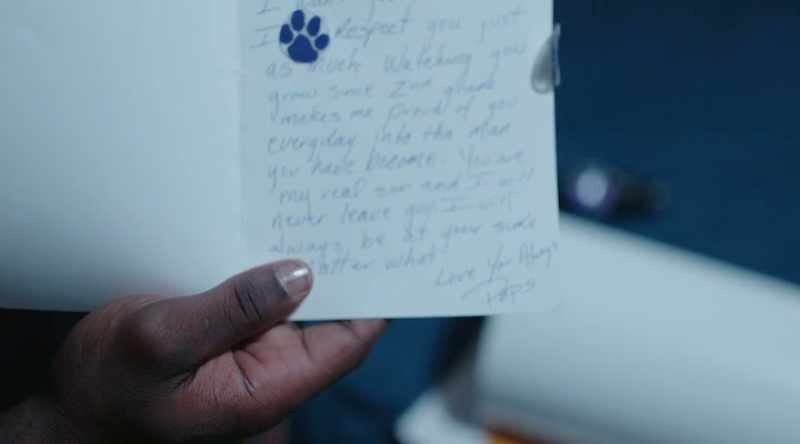 I
I Respect you just
as much. Watching you
grow since 2nd grade
makes me proud of you
everyday into the man
you have become. You are
my real son and I will
never leave you I will
always be at your side
matter what.
Love You Always
Pops